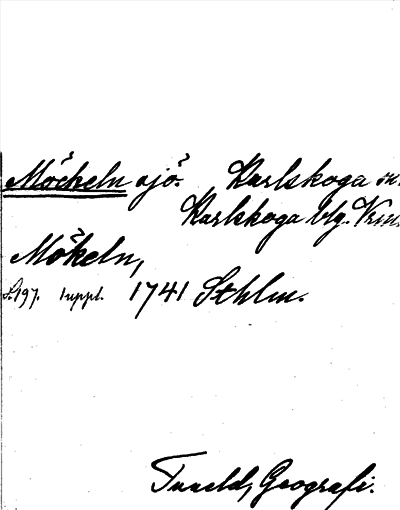 Möckeln sjö. Karlskoga sn.
Karlskoga blg. Vrm.
Mökeln,
S. 197. suppl. 1741 Sthlm.
Tuneld, Geografi.